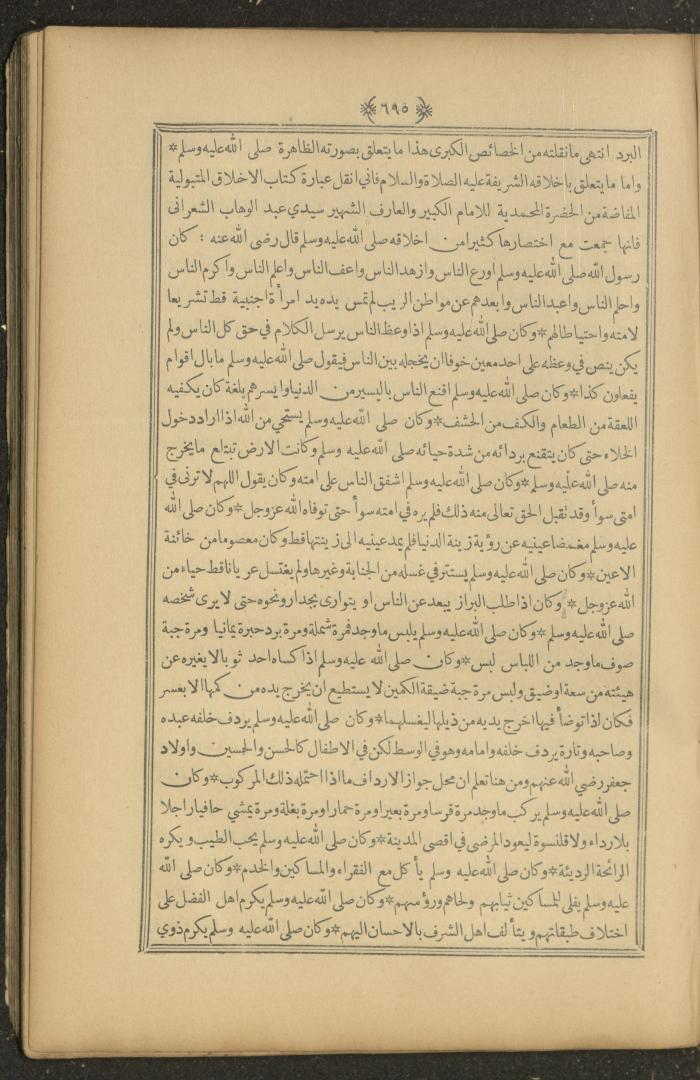 ٦٩٥
البرد انتهى ما نقلته من الخصائص الكبرى هذا ما يتعلق بصورته الظاهرة صلى الله عليه وسلم *
واما ما يتعلق باخلاقه الشريفة عليه الصلاة والسلام فاني انقل عبارة كتاب الاخلاق المتبولية
المفاضة من الحضرة المحمدية للامام الكبير والعارف الشهير سيدي عبد الوهاب الشعرانى
فانها جمعت مع اختصارها كثيرا من اخلاقه صلى الله عليه وسلم قال رضى الله عنه : كان
رسول الله صلى الله عليه وسلم اورع الناس وازهد الناس واعف الناس واعلم الناس واكرم الناس
واحلم الناس واعبد الناس وابعدهم عن مواطن الريب لم تمس يده يد امرأة اجنبية قط تشريعا
لامته واحتياطا لهم * وكان صلى الله عليه وسلم اذا وعظ الناس يرسل الكلام في حق كل الناس ولم
يكن ينص في وعظه على احد معين خوفا ان يخجله بين الناس فيقول صلى الله عليه وسلم ما بال اقوام
يفعلون كذا * وكان صلى الله عليه وسلم اقنع الناس باليسير من الدنيا وايسرهم بلغة كان يكفيه
اللعقة من الطعام والكف من الحشف * وكان صلى الله عليه وسلم يستحي من الله اذا اراد دخول
الخلاء حتى كان يتقنع بردائه من شدة حيائه صلى الله عليه وسلم وكانت الارض تبتلع ما يخرج
منه صلى الله عليه وسلم * وكان صلى الله عليه وسلم اشفق الناس على امته وكان يقول اللهم لا ترنى في
امتى سوأ وقد تقبل الحق تعالى منه ذلك فلم يره في امته سوأ حتى توفاه الله عز وجل * وكان صلى الله
عليه وسلم مغمضا عينيه عن رؤية زينة الدنيا فلم يمد عينيه الى زينتها قط وكان معصوما من خائنة
الاعين * وكان صلى الله عليه وسلم يستتر في غسله من الجنابة وغيرها ولم يغتسل عريانا قط حياء من
الله عز وجل * وكان اذا طلب البراز يبعد عن الناس او يتوارى بجدار ونحوه حتى لا يرى شخصه
صلى الله عليه وسلم * وكان صلى الله عليه وسلم يلبس ما وجد فمرة شملة ومرة برد حبرة يمانيا ومرة جبة
صوف ما وجد من اللباس لبس * وكان صلى الله عليه وسلم اذا كساه احد ثوبا لا يغيره عن
هيئته من سعة او ضيق ولبس مرة جبة ضيقة الكمين لا يستطيع ان يخرج يده من كمها الا بعسر
فكان اذا توضأ فيها اخرج يديه من ذيلها ليغسلهما * وكان صلى الله عليه وسلم يردف خلفه عبده
وصاحبه وتارة يردف خلفه وامامه وهو في الوسط لكن في الاطفال كالحسن والحسين واولاد
جعفر رضي الله عنهم ومن هنا تعلم ان محل جواز الارداف ما اذا احتمله ذلك المركوب * وكان
صلى الله عليه وسلم يركب ما وجد مرة فرسا ومرة بعيرا ومرة حمارا ومرة بغلة ومرة يمشي حافيا راجلا
بلا رداء ولا قلنسوة ليعود المرضى في اقصى المدينة * وكان صلى الله عليه وسلم يحب الطيب ويكره
الرائحة الرديئة * وكان صلى الله عليه وسلم يأكل مع الفقراء والمساكين والخدم * وكان صلى الله
عليه وسلم يفلى للمساكين ثيابهم ولحاهم ورؤسهم * وكان صلى الله عليه وسلم يكرم اهل الفضل على
اختلاف طبقاتهم ويتألف اهل الشرف بالاحسان اليهم * وكان صلى الله عليه وسلم يكرم ذوي